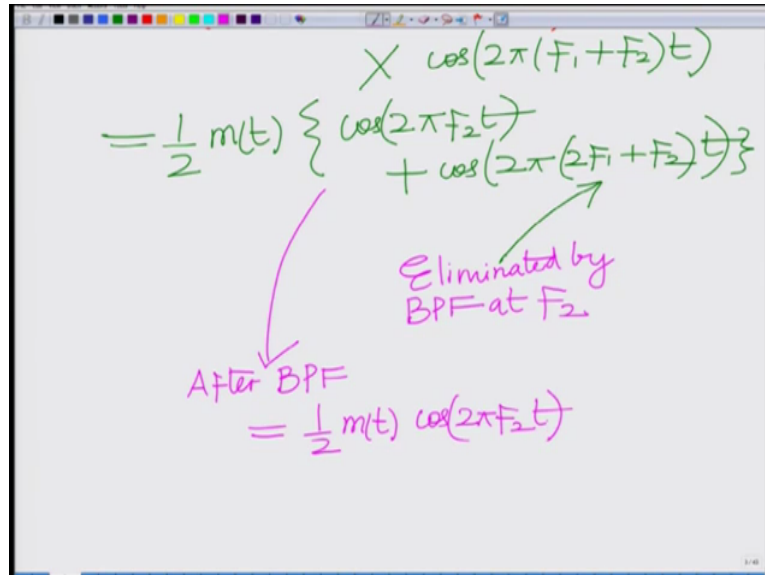 × cos(2π(F₁+F₂)t)
= 1/2 m(t) { cos(2πF₂t)
+ cos(2π(2F₁+F₂)t) }
Eliminated by
BPF at F₂.
After BPF
= 1/2 m(t) cos(2πF₂t)